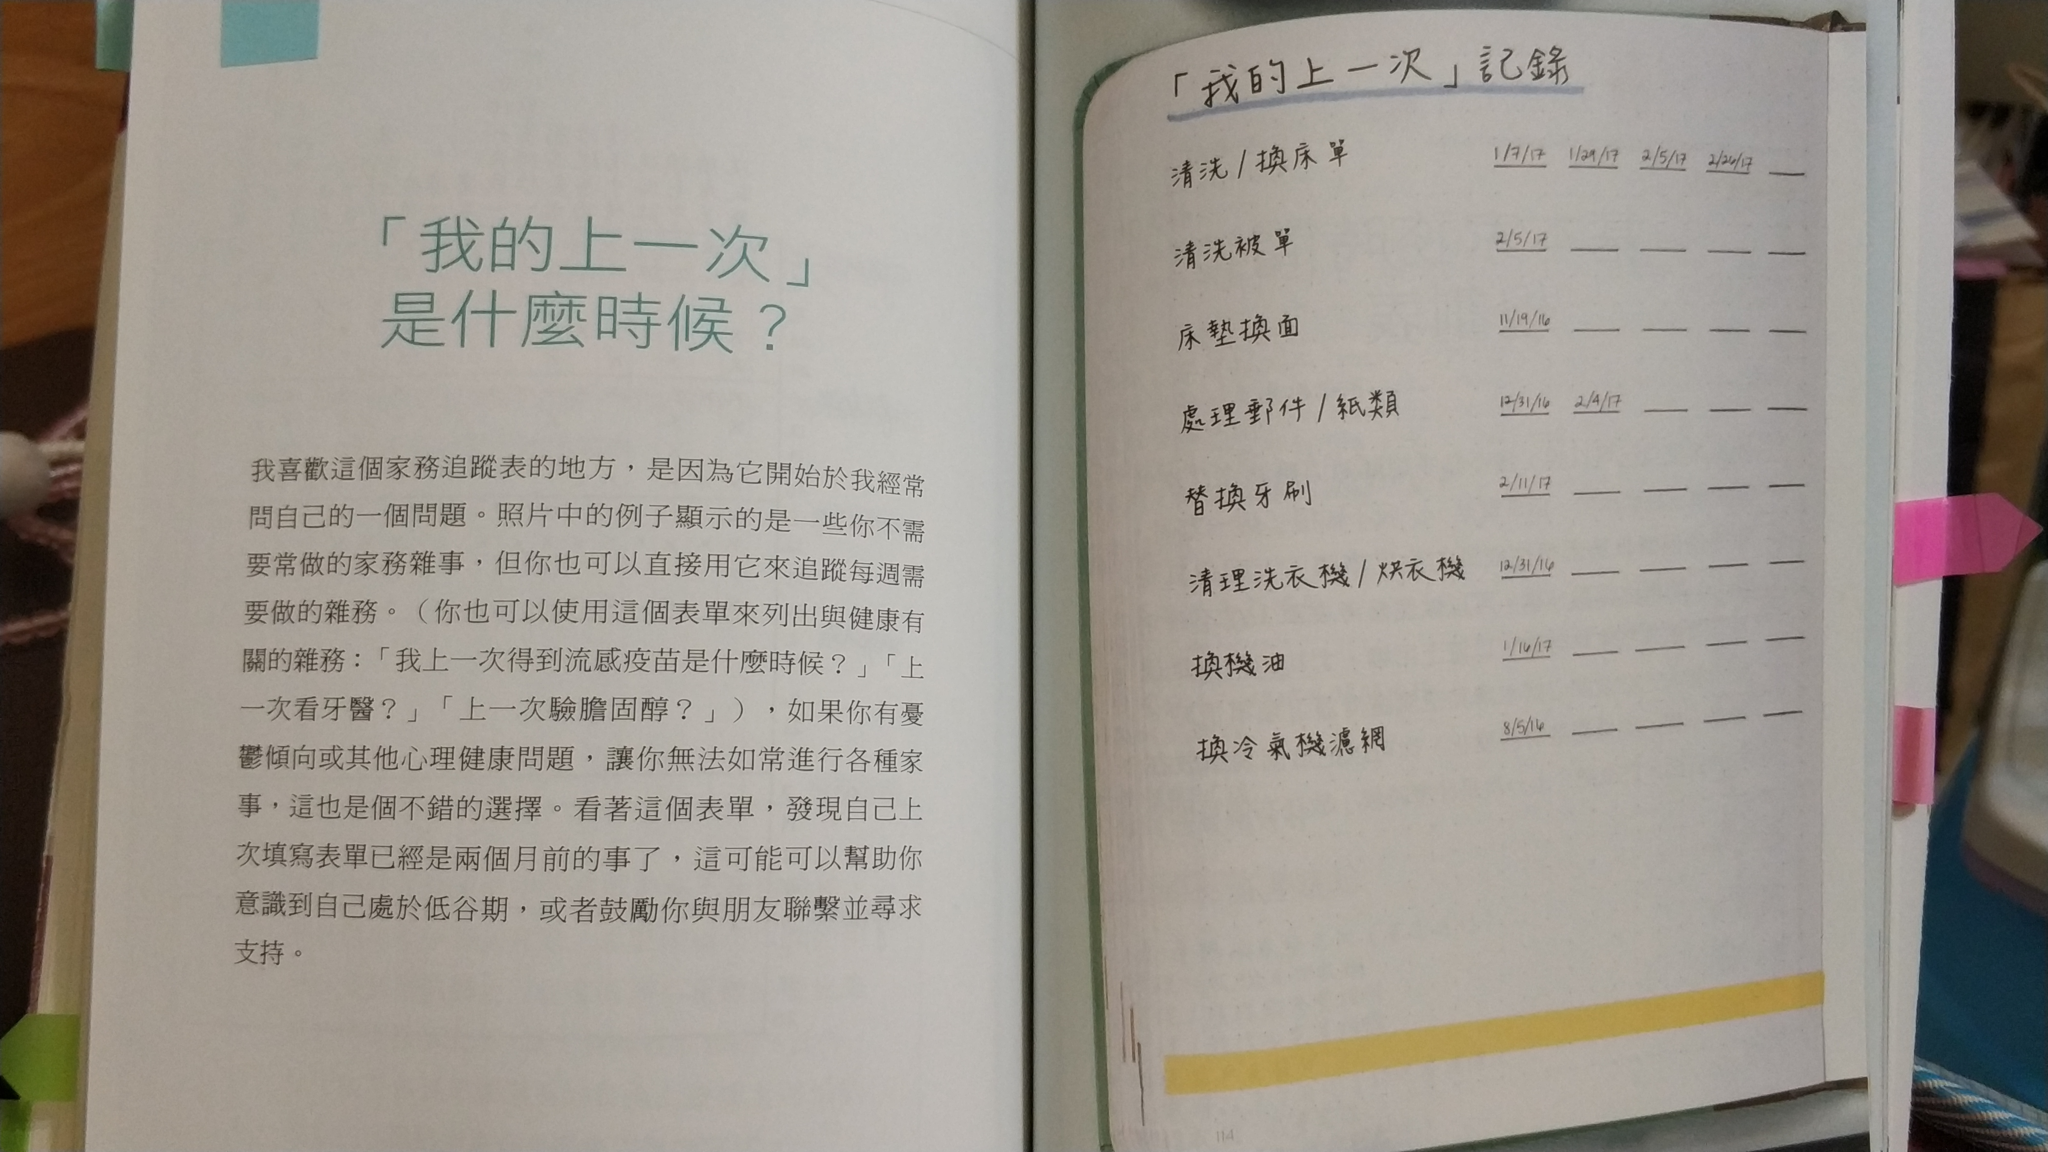 「我的上一次」
是什麼時候？
我喜歡這個家務追蹤表的地方，是因為它開始於我經常
問自己的一個問題。照片中的例子顯示的是一些你不需
要常做的家務雜事，但你也可以直接用它來追蹤每週需
要做的雜務。（你也可以使用這個表單來列出與健康有
關的雜務：「我上一次得到流感疫苗是什麼時候？」「上
一次看牙醫？」「上一次驗膽固醇？」），如果你有憂
鬱傾向或其他心理健康問題，讓你無法如常進行各種家
事，這也是個不錯的選擇。看著這個表單，發現自己上
次填寫表單已經是兩個月前的事了，這可能可以幫助你
意識到自己處於低谷期，或者鼓勵你與朋友聯繫並尋求
支持。
「我的上一次」記錄
清洗/換床單 1/7/17 1/29/17 2/5/17 2/26/17
清洗被單 2/5/17
床墊換面 11/19/16
處理郵件/紙類 12/31/16 2/4/17
替換牙刷 2/11/17
清理洗衣機/烘衣機 12/31/16
換機油 1/16/17
換冷氣機濾網 8/5/16
114